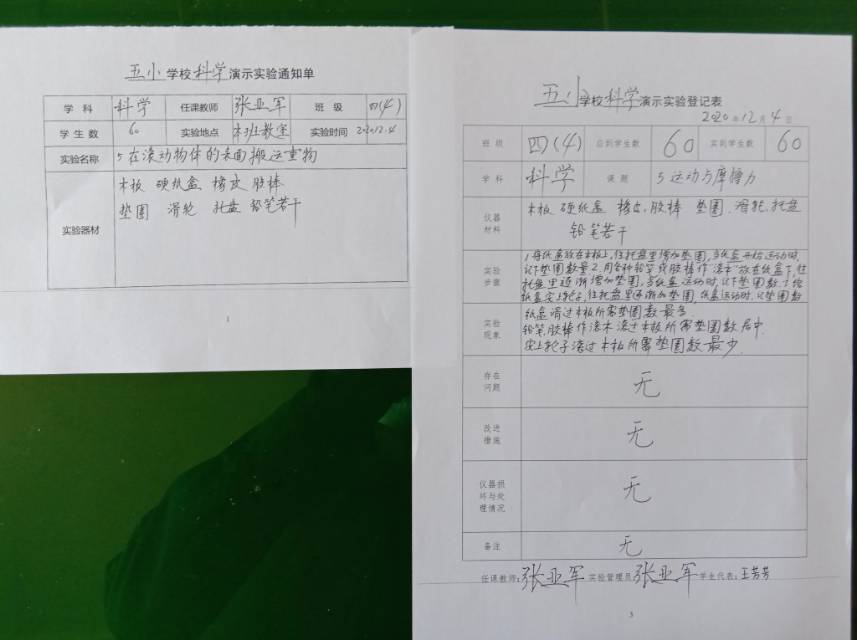 五小学校科学演示实验通知单
学科 科学 任课教师 张亚军 班级 四(4)
学生数 60 实验地点 本班教室 实验时间 2020.12.4
实验名称 5在滚动物体的表面搬运重物
实验器材 木板 硬纸盒 橡皮 胶棒
垫圈 滑轮 托盘 铅笔若干
1
五小学校科学演示实验登记表
2020年12月4日
班级 四(4) 应到学生数 60 实到学生数 60
学科 科学 课题 5运动与摩擦力
仪器材料 木板 硬纸盒 橡皮、胶棒 垫圈、滑轮、托盘
铅笔若干
实验步骤 1.将纸盒放在木板上,往托盘里增加垫圈,当纸盒开始运动时,
记下垫圈数量2.用各种铅笔或胶棒作"滚木"放在纸盒下,往
托盘里逐渐增加垫圈,当纸盒运动时,记下垫圈数.3给
纸盒安上轮子,往托盘里逐渐加垫圈,纸盒运动时,记垫圈数
实验现象 纸盒滑过木板所需垫圈数最多.
铅笔,胶棒作滚木滚过木板所需垫圈数居中.
安上轮子滚过木板所需垫圈数最少.
存在问题 无
改进措施 无
仪器损坏与处理情况 无
备注 无
任课教师:张亚军 实验管理员:张亚军 学生代表:王芳芳
3